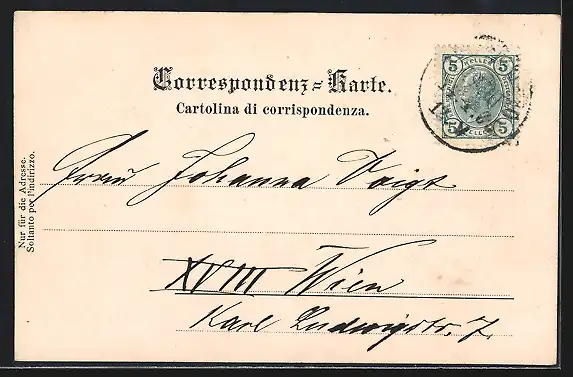 Correspondenz=Karte.
Cartolina di corrispondenza.
5 HELLER 5
5 HELLER 5
Nur für die Adresse.
Soltanto per l'indirizzo.
Frau Johanna Voigt
XVIII Wien
Karl Ludwigstr. 7.